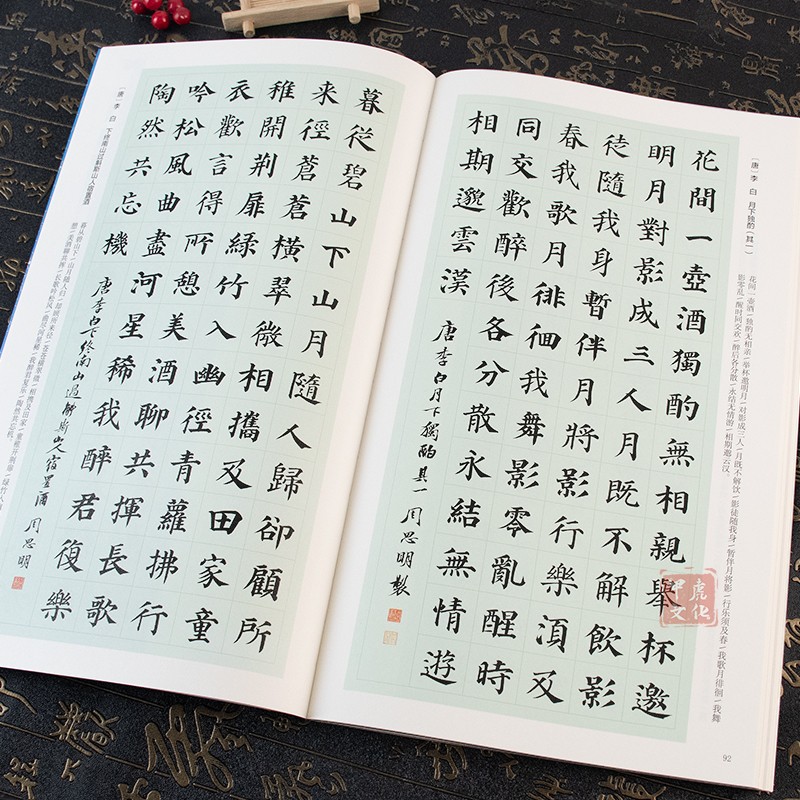 （唐）李 白 月下独酌（其一）
花间一壶酒/独酌无相亲/举杯邀明月/对影成三人/月既不解饮/影徒随我身/暂伴月将影/行乐须及春/我歌月徘徊/我舞
影零乱/醒时同交欢/醉后各分散/永结无情游/相期邈云汉。
花間一壺酒獨酌無相親舉杯邀
明月對影成三人月既不解飲影
徒隨我身暫伴月將影行樂湏及
春我歌月徘徊我舞影零亂醒時
同交歡醉後各分散永結無情遊
相期邈雲漢 唐李白月下獨酌其一 周思明製
92
甲虎文化
暮從碧山下山月隨人歸卻顧所
来徑蒼蒼橫翠微相攜及田家童
稚開荆扉綠竹入幽徑青蘿拂行
衣歡言得所憩美酒聊共揮長歌
吟松風曲盡河星稀我醉君復樂
陶然共忘機 唐李白下終南山過斛斯山人宿置酒 周思明
（唐）李 白 下终南山过斛斯山人宿置酒
暮从碧山下/山月随人归/却顾所来径/苍苍横翠微/相携及田家/童稚开荆扉/绿竹入
憩/美酒聊共挥/长歌吟松风/曲尽河星稀/我醉君复乐/陶然共忘机。